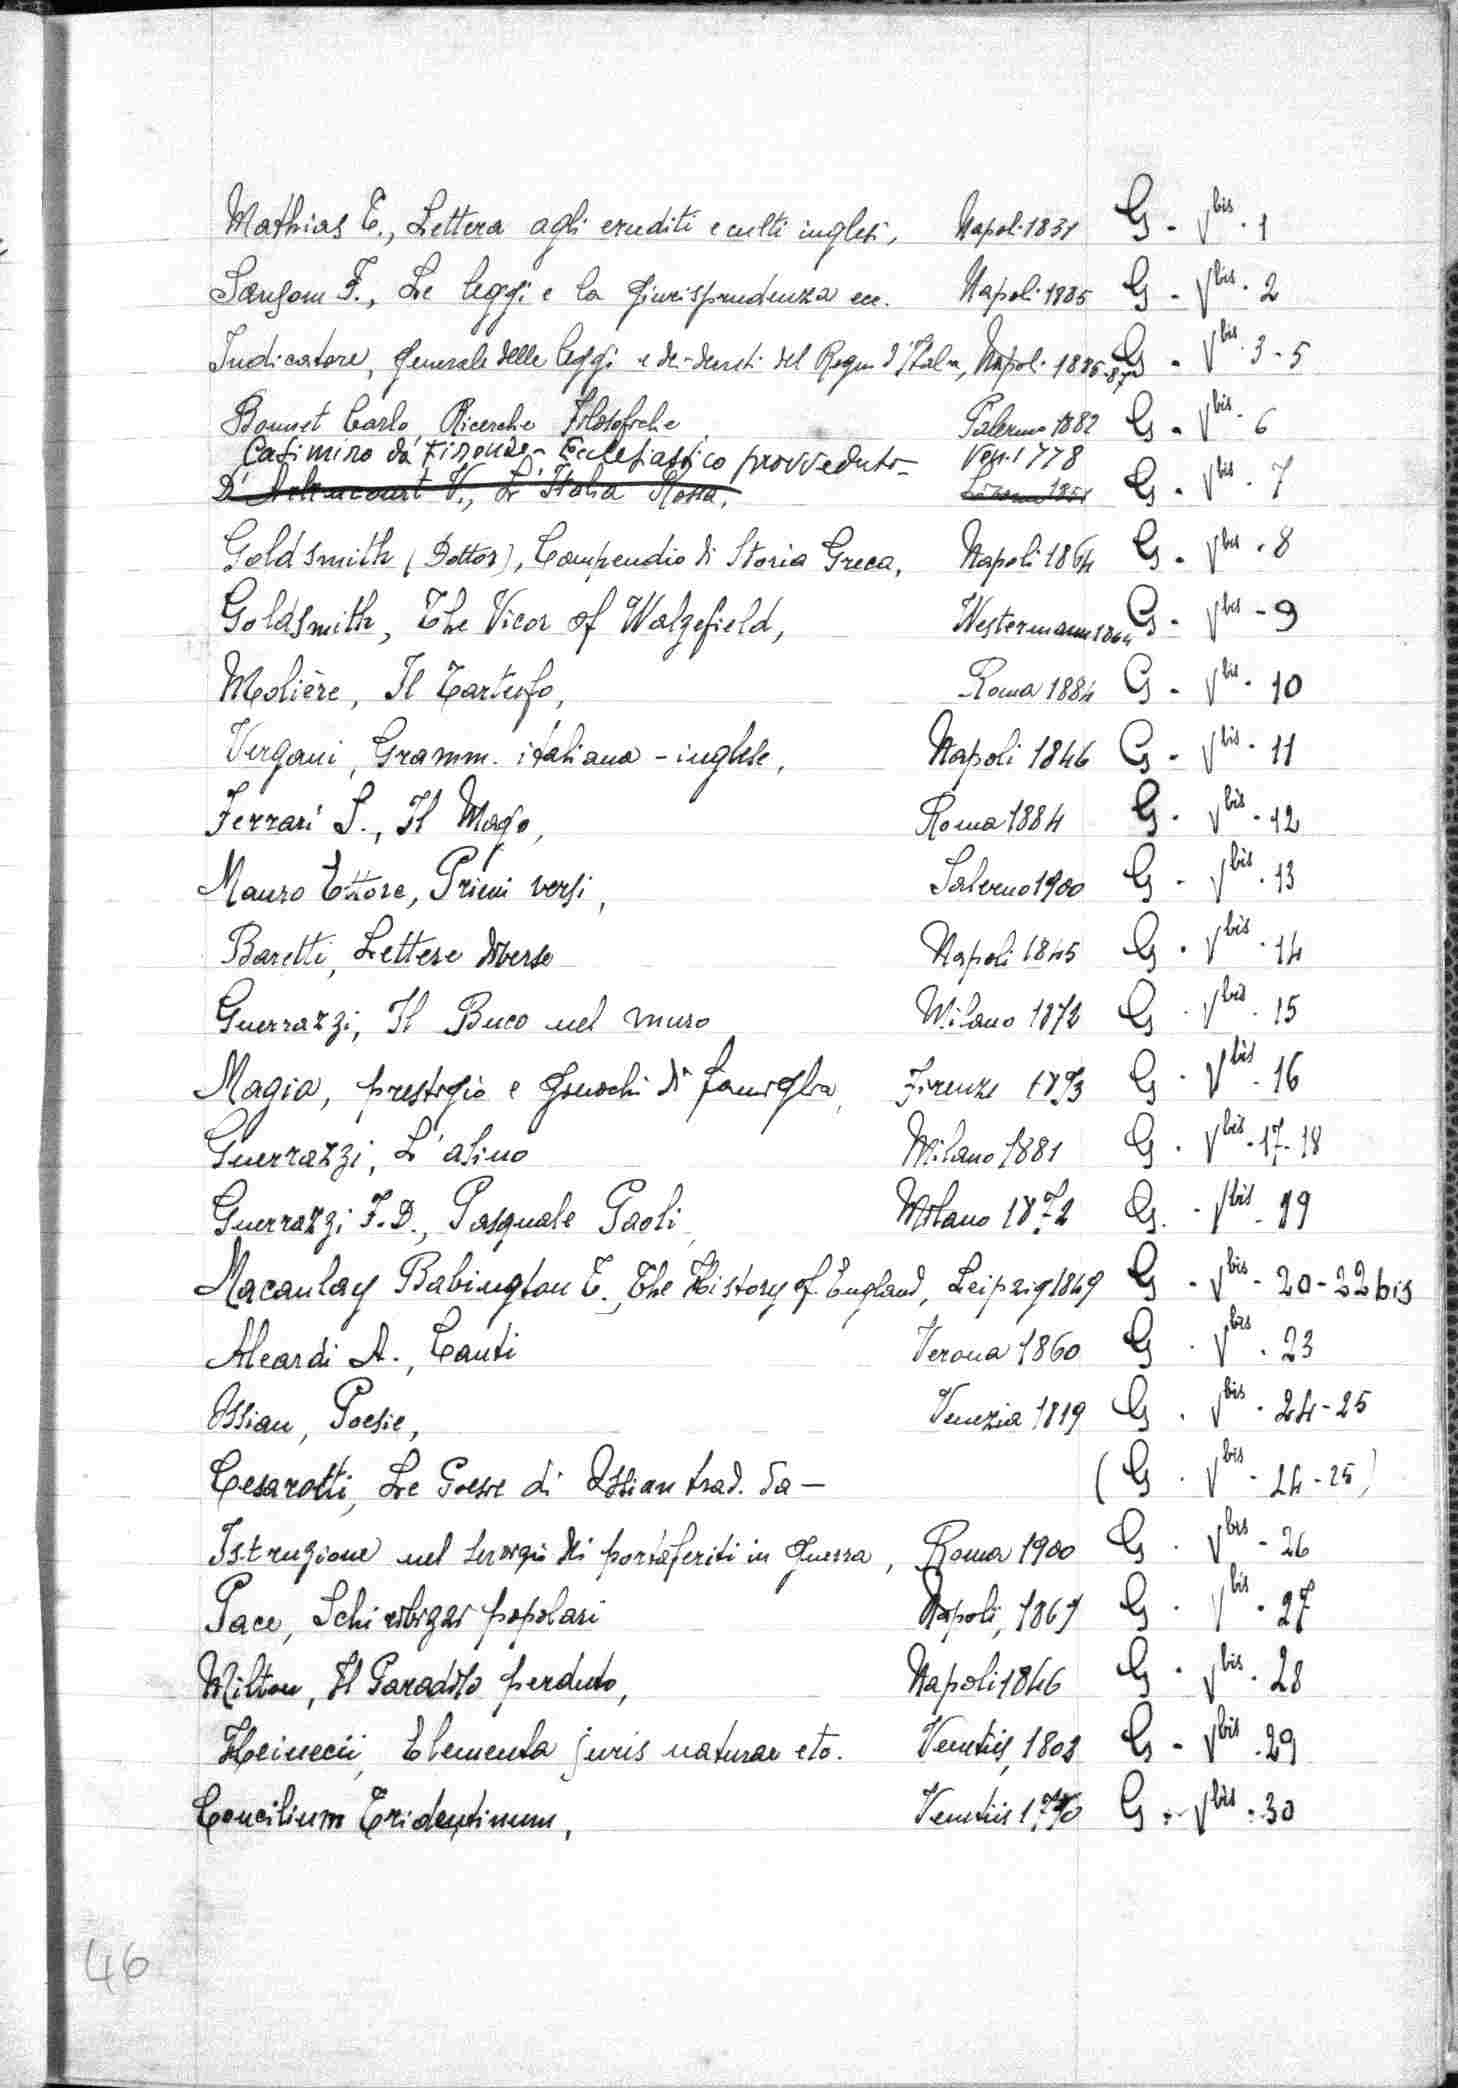 Mathias T., Lettera agli eruditi e culti inglesi, Napoli 1831 G - V bis - 1
F., Le leggi e la giurisprudenza ecc. Napoli 1885 G - V bis - 2
Indicatore, generale delle leggi e dei decreti del Regno d'Italia, Napoli 1886-87 G - V bis 3-5
Bonnet Carlo, Ricerche Filosofiche Palermo 1882 G - V bis - 6
Casimiro da Firenze - Ecclesiastico provveduto - Ven. 1778
D'Arlincourt V., L'Italia Rossa, 1851 G - V bis - 7
Goldsmith (Dottor), Compendio di Storia Greca, Napoli 1864 G - V bis - 8
Goldsmith, The Vicar of Walgefield, Westermann 1864 G - V bis - 9
Molière, Il Tartufo, Roma 1884 G - V bis - 10
Vergani, Gramm. italiana - inglese, Napoli 1846 G - V bis - 11
Ferrari S., Il Mago, Roma 1884 G - V bis - 12
Mauro Ettore, Primi versi, Salerno 1900 G - V bis - 13
Baretti, Lettere diverse Napoli 1845 G - V bis - 14
Guerrazzi, Il Buco nel muro Milano 1872 G - V bis - 15
Magia, prestigio e giuochi di famiglia, Firenze 1873 G - V bis - 16
Guerrazzi, L'asino Milano 1881 G - V bis - 17-18
Guerrazzi F.D., Pasquale Paoli, Milano 1872 G. - V bis - 19
Macaulay Babington T., The History of England, Leipzig 1849 G - V bis - 20-22 bis
Aleardi A., Canti Verona 1860 G - V bis - 23
Ossian, Poesie, Venezia 1819 G - V bis - 24-25
Cesarotti, Le Poesie di Ossian trad. da - (G - V bis - 24-25)
Istruzione nel servizio di portaferiti in guerra, Roma 1900 G - V bis - 26
Pace, Schiribizzi popolari Napoli, 1869 G - V bis - 27
Milton, Il Paradiso perduto, Napoli 1846 G - V bis - 28
Heinecii, Elementa juris naturae etc. Venetiis, 1802 G - V bis - 29
Concilium Tridentinum, Venetiis 1770 G - V bis - 30
46